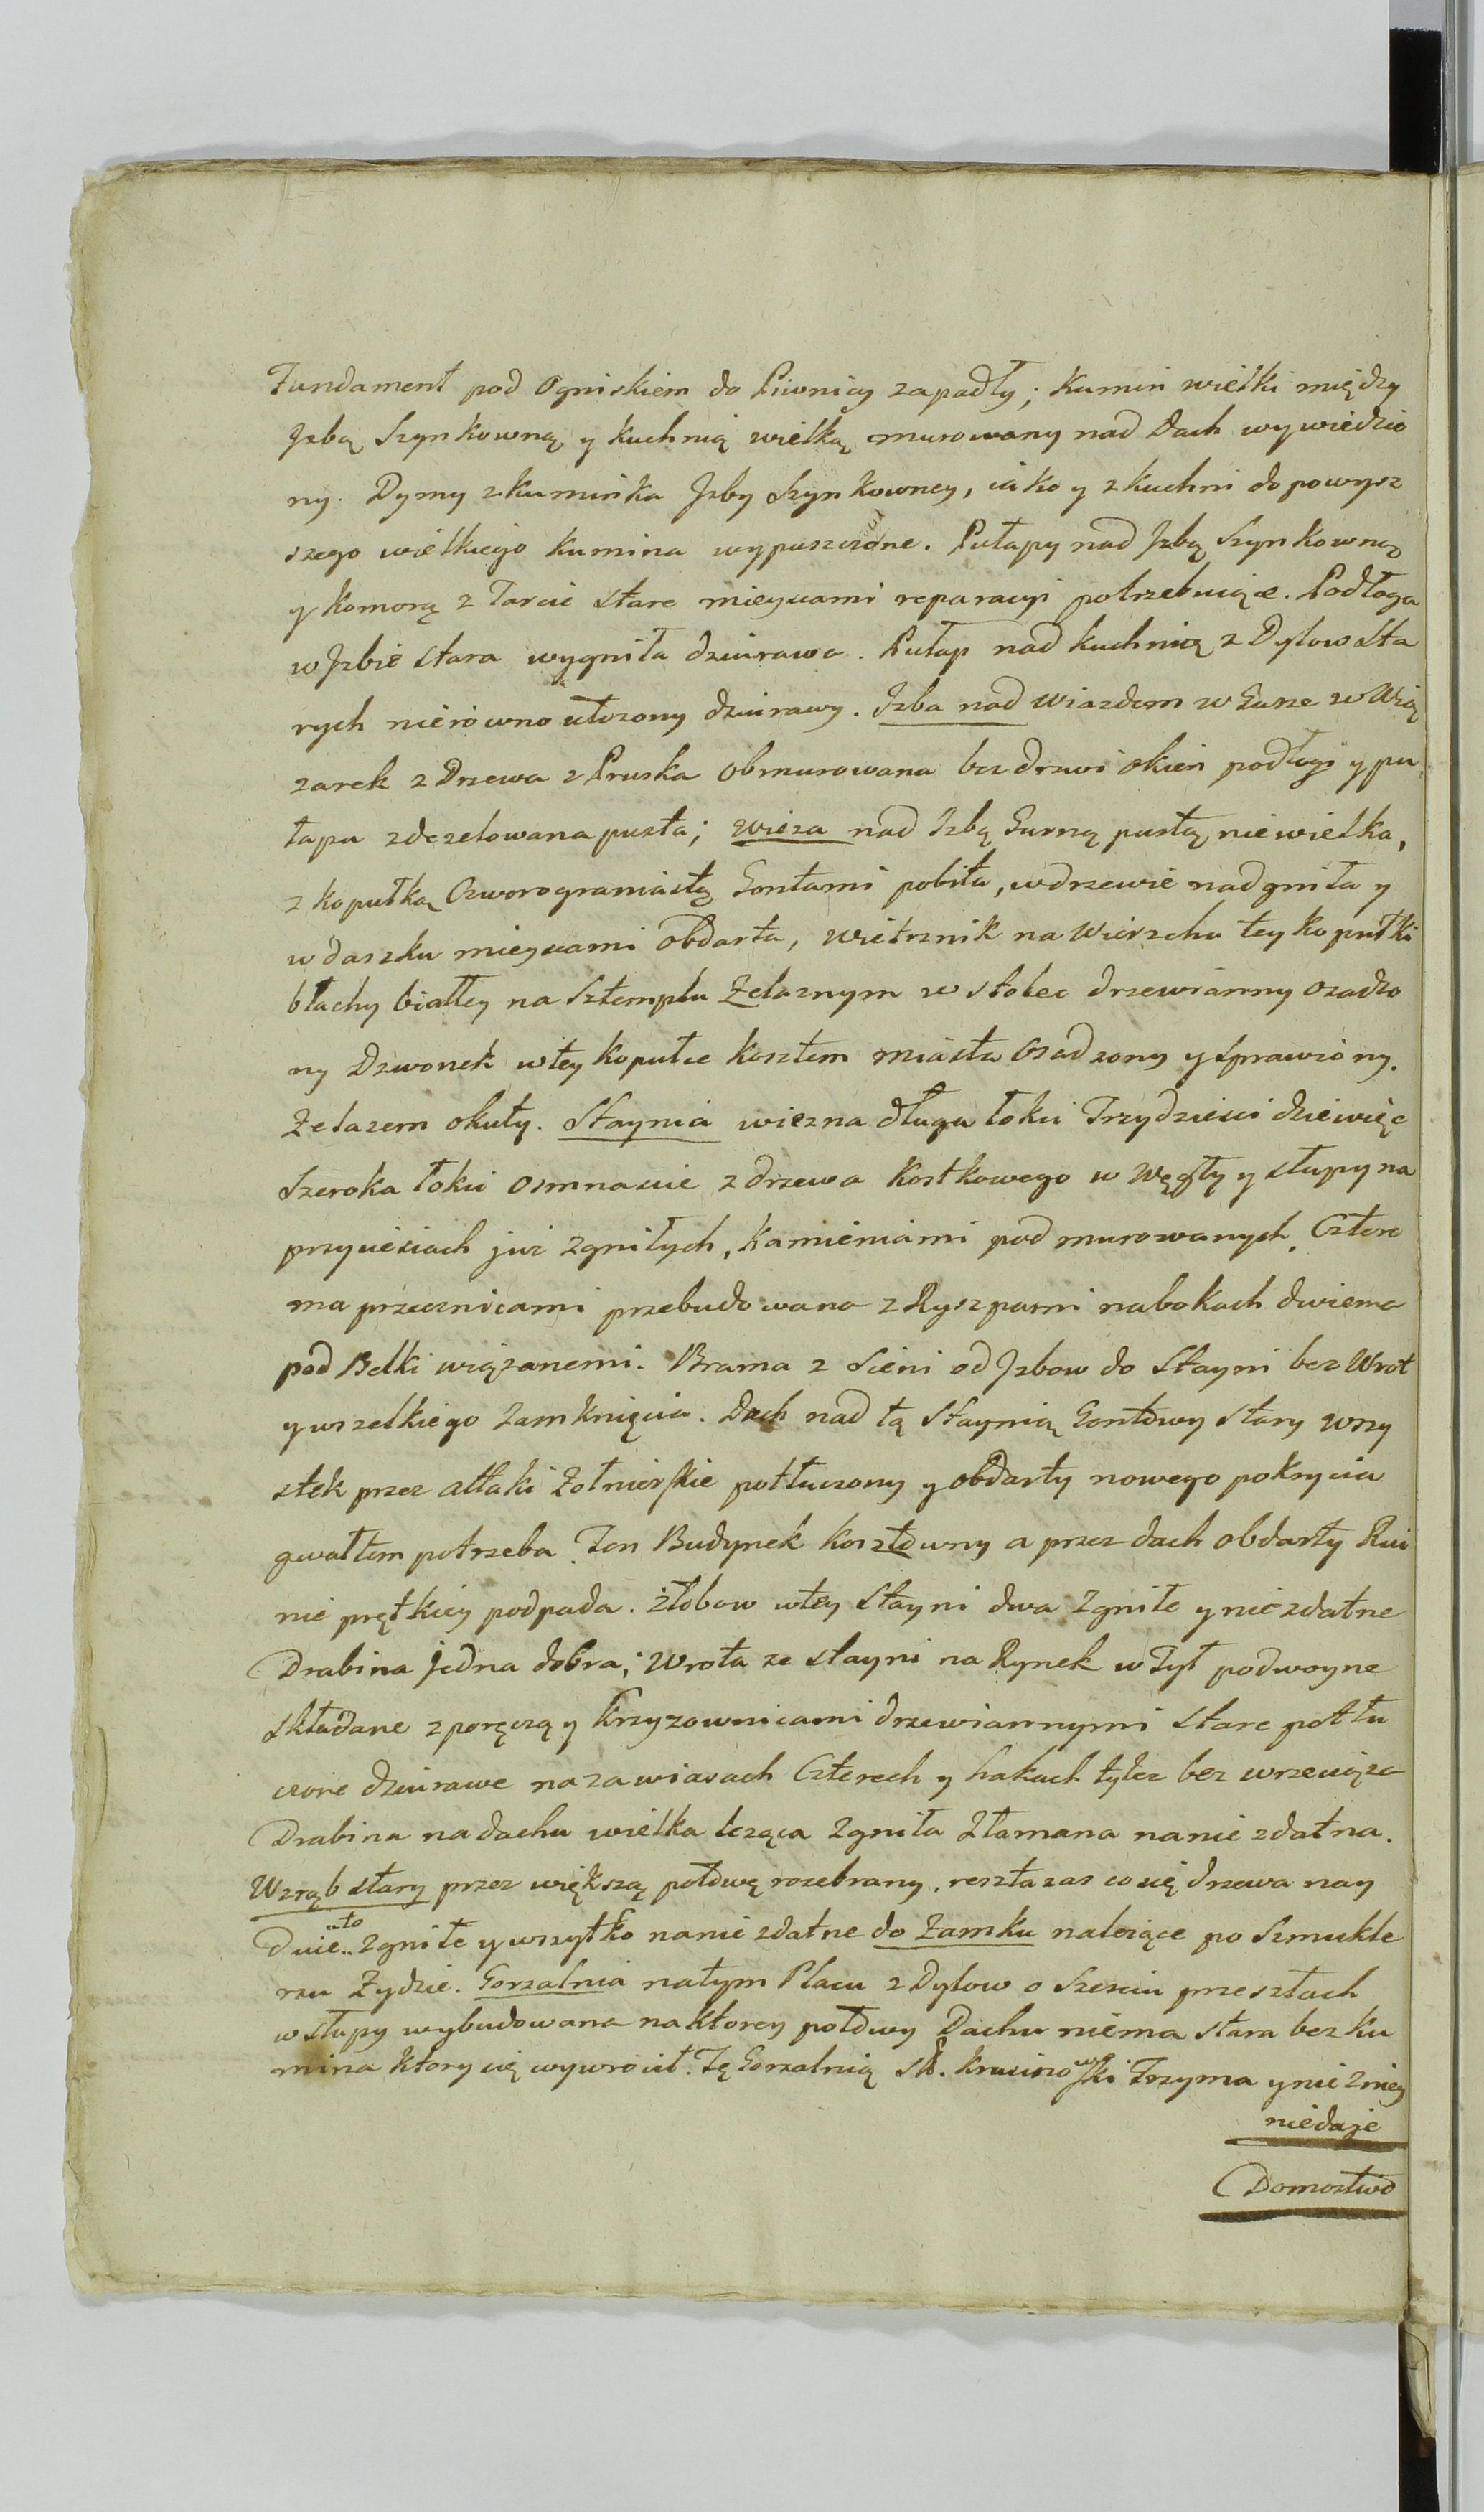 Fundament pod Ogniskiem do Piwnicy zapadły; Kumin wielki między
Jzbą Szynkowną y Kuchnią wielką murowany nad Dach wywiedzio
ny. Dymy z Kuminka Jzby Szynkowney, iako y z kuchni do powysz
szego wielkiego Kumina wypuszczone. Pułapy nad Jzbą Szynkowną
y Komorą z Tarcic stare mieyscami reparacyi potrzebuiące. Podłoga
w Jzbie stara wygniła dziurawa. Pułap nad kuchnią z Dylow Sta
rych nierowno ułozony dziurawy. Jzba nad Wiazdem w Gurze w Wią
zarek z Drzewa z Pruska obmurowana bez drzwi okien podłogi y pu
łapu zdezelowana pusta; wieza nad Jzbą Gurną pustą niewielka,
z kopułką Czworograniastą Gontami pobita, w drzewie nadgniła y
w daszku mieyscami obdarta, wietrznik na Wierzchu tey kopułki
błachy białey na Sztemplu Zelaznym w stolec drzewianny osadzo
ny Dzwonek w tey Kopułce kosztem miasta Osadzony y sprawiony.
Zelazem okuty. Staynia wiezna długa łokci Trzydziesci dziewięc
Szeroka łokci osmnascie z drzewa Kostkowego w Węgły y słupy na
przyciesiach juz zgniłych, kamieniami podmurowanych, Cztere
ma przecznicami przebudowana z Ryszpami na bokach dwiema
pod Belki wiązanemi. Brama z Sieni od Jzbow do Stayni bez Wrot
y wszelkiego Zamknięcia. Dach nad tą Staynią Gontowy stary wszy
stek przez attaki Zołnierskie potłuczony y obdarty nowego pokrycia
gwałtem potrzeba. Ten Budynek kosztowny a przez dach obdarty Rui
nie prętkiey podpada. żłobow w tey Stayni dwa Zgniłe y niezdatne
Drabina jedna dobra; Wrota ze stayni na Rynek w Tył podwoyne
składane z poręczą y krzyzownicami drzewiannymi Stare potłu
czone dziurawe na zawiasach Czterech y hakach tylez bez wrzeciąza
Drabina na dachu wielka leząca Zgniła Złamana nanic zdatna.
Wzrąb stary przez większą połowę rozebrany, reszta zas co się drzewa nay
duie ..ło zgniłe y wszytko nanic zdatne do Zamku nalezące po Szmukle
rzu Zydzie. Gorzalnia na tym Placu z Dylow o Szesciu przesztach
w słupy wybudowana na ktorey połowy Dachu niema stara bez Ku
mina ktory się wywrocił. Tę Gorzalnią Trzyma y nic z niey
niedaje
Domostwo